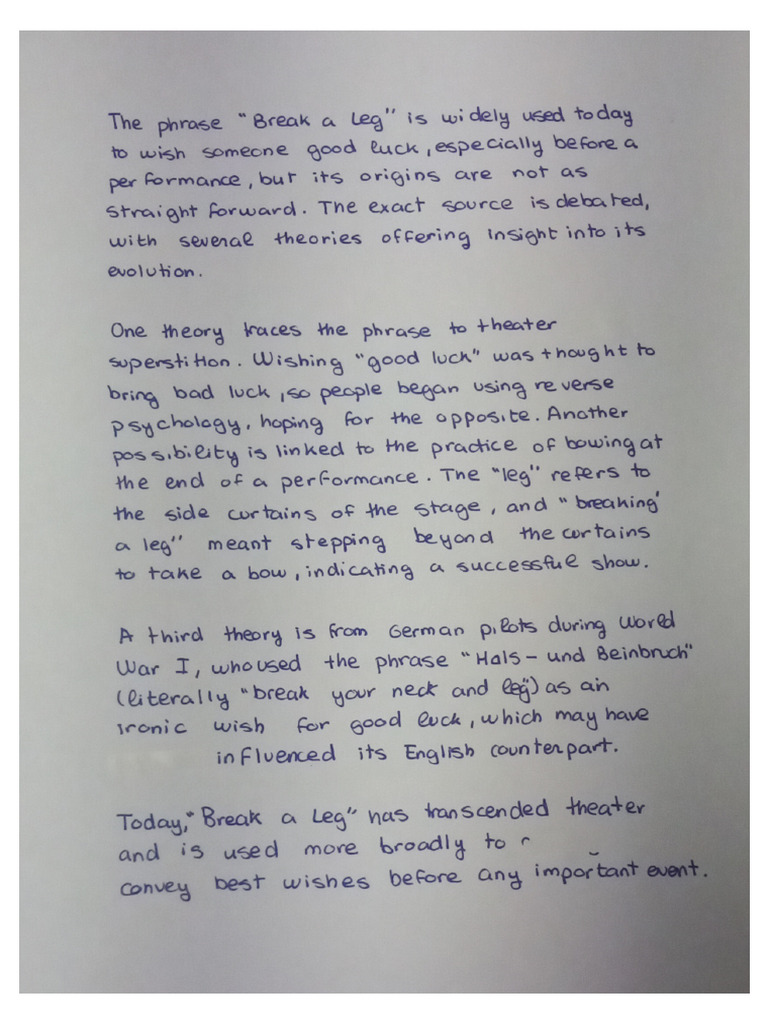 The phrase "Break a Leg" is widely used today
to wish someone good luck, especially before a
performance, but its origins are not as
straight forward. The exact source is debated,
with several theories offering insight into its
evolution.
One theory traces the phrase to theater
superstition. Wishing "good luck" was thought to
bring bad luck, so people began using reverse
psychology, hoping for the opposite. Another
possibility is linked to the practice of bowing at
the end of a performance. The "leg" refers to
the side curtains of the stage, and "breaking
a leg" meant stepping beyond the curtains
to take a bow, indicating a successful show.
A third theory is from German pilots during World
War I, who used the phrase "Hals - und Beinbruch"
(literally "break your neck and leg") as an
ironic wish for good luck, which may have
influenced its English counterpart.
Today, "Break a Leg" has transcended theater
and is used more broadly to
convey best wishes before any important event.